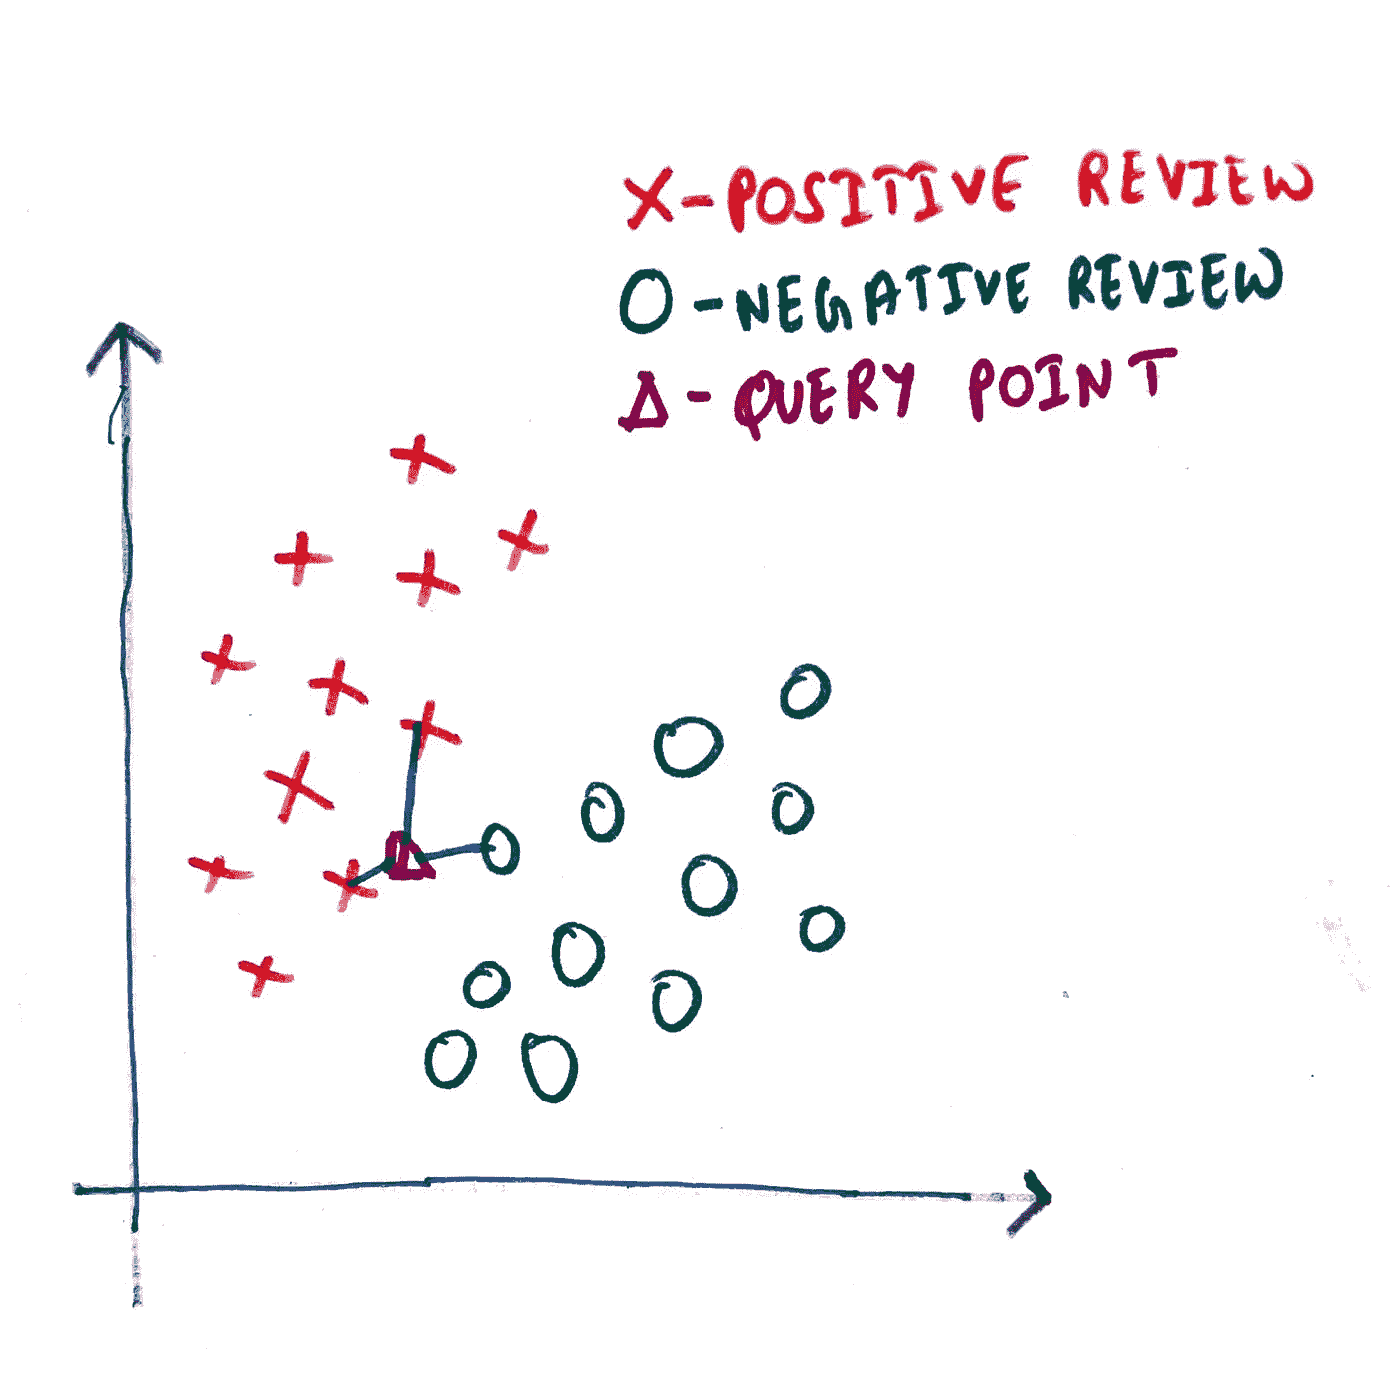 X-POSITIVE REVIEW
O-NEGATIVE REVIEW
Δ-QUERY POINT